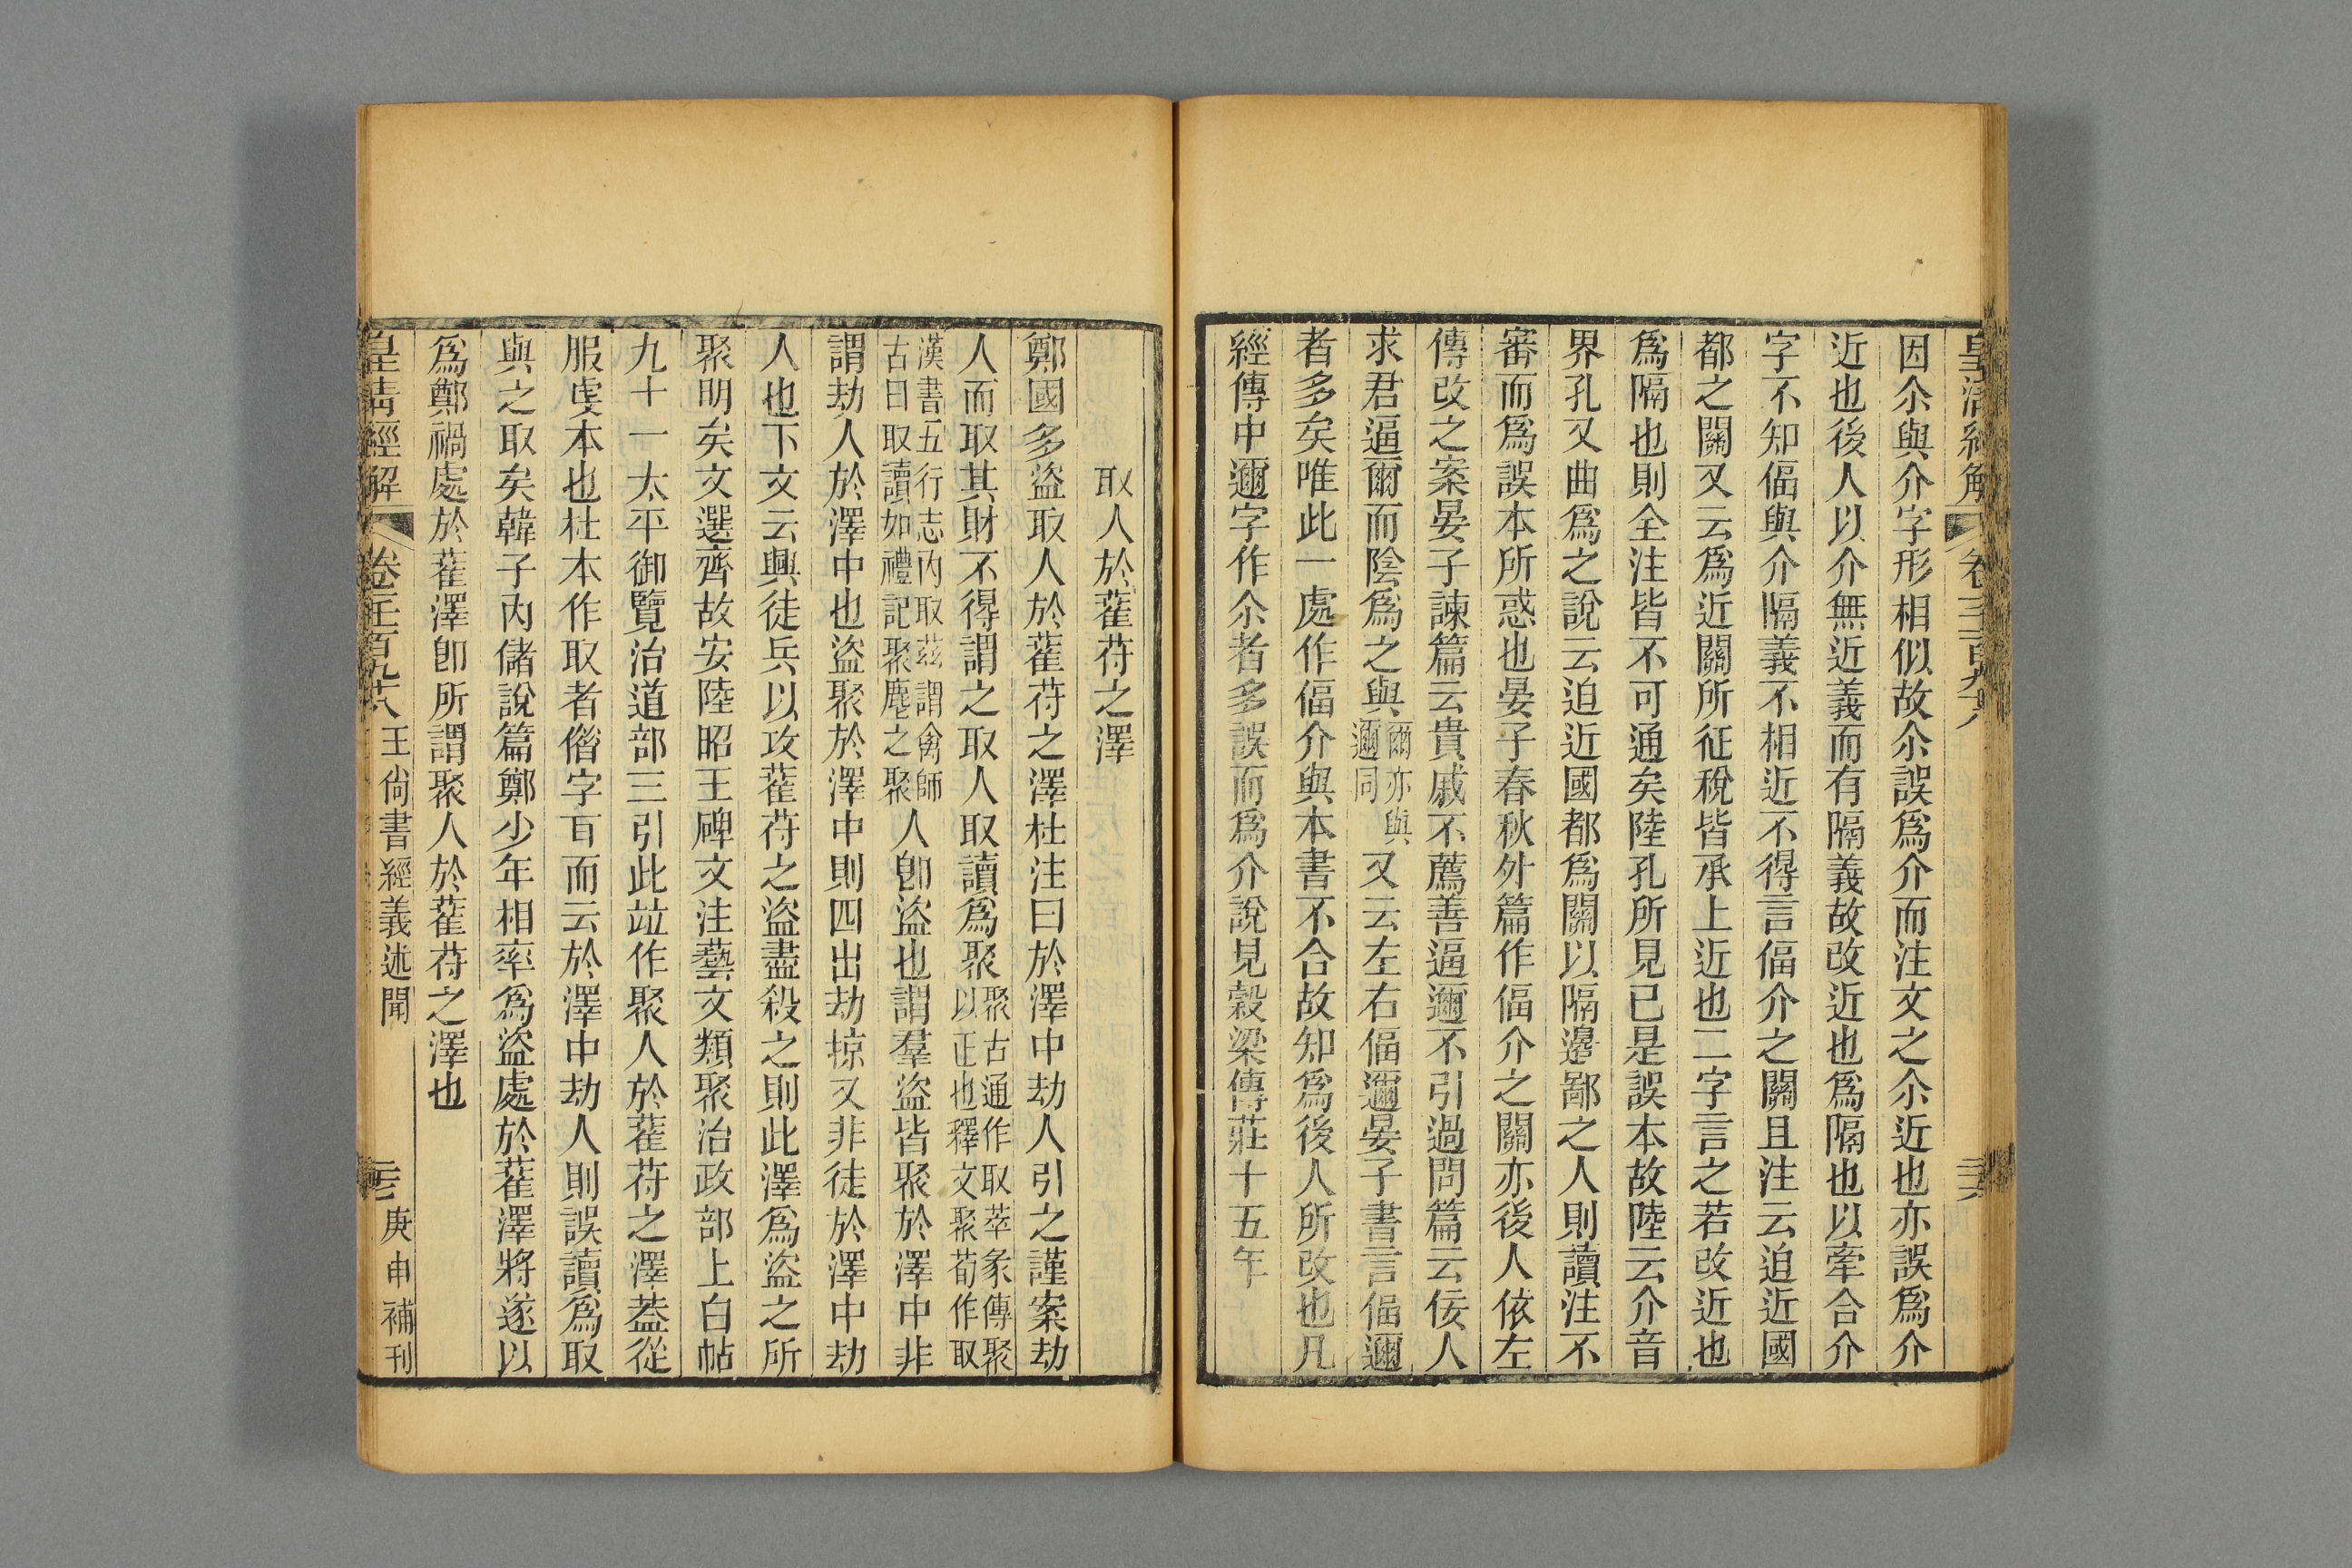 皇清經解
卷千一百九十八
因尒與介字形相似故尒誤爲介而注文之尒近也亦誤爲介
近也後人以介無近義而有隔義故改近也爲隔也以牽合介
字不知偪與介隔義不相近不得言偪介之關且注云迫近國
都之關又云爲近關所征稅皆承上近也二字言之若改近也
爲隔也則全注皆不可通矣陸孔所見已是誤本故陸云介音
界孔又曲爲之說云迫近國都爲關以隔邊鄙之人則讀注不
審而爲誤本所惑也晏子春秋外篇作偪介之關亦後人依左
傳改之案晏子諫篇云貴戚不薦善逼邇不引過問篇云佞人
求君逼爾而陰爲之與爾亦與邇同又云左右偪邇晏子書言偪邇
者多矣唯此一處作偪介與本書不合故知爲後人所改也凡
經傳中邇字作尒者多誤而爲介說見穀梁傳莊十五年
取人於萑苻之澤
鄭國多盜取人於萑苻之澤杜注曰於澤中劫人引之謹案劫
人而取其財不得謂之取人取讀爲聚聚古通作取萃彖傳聚以正也釋文聚荀作取
漢書五行志內取茲謂禽師古曰取讀如禮記聚麀之聚人卽盜也謂羣盜皆聚於澤中非
謂劫人於澤中也盜聚於澤中則四出劫掠又非徒於澤中劫
人也下文云興徒兵以攻萑苻之盜盡殺之則此澤爲盜之所
聚明矣文選齊故安陸昭王碑文注藝文類聚治政部上白帖
九十一太平御覽治道部三引此竝作聚人於萑苻之澤葢從
服虔本也杜本作取者偺字百而云於澤中劫人則誤讀爲取
與之取矣韓子內儲說篇鄭少年相率爲盜處於萑澤將遂以
爲鄭禍處於萑澤卽所謂聚人於萑苻之澤也
皇清經解
王尙書經義述聞
庚申補刊